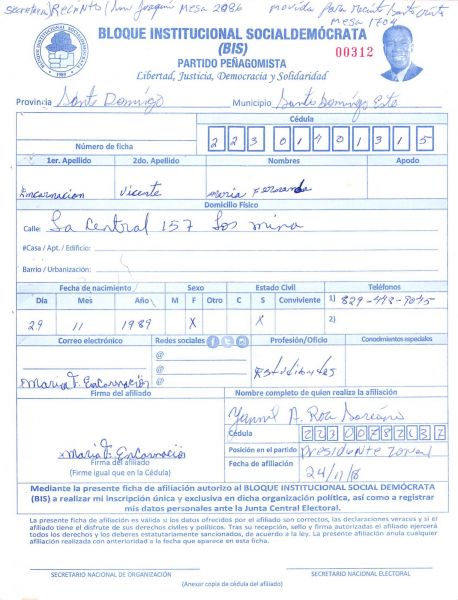 Secretaria/Recinto/San Joaquin Mesa 2086 movida para recinto/Santa Cruz
Mesa 1704
BLOQUE INSTITUCIONAL SOCIALDEMÓCRATA
(BIS)
00312
PARTIDO PEÑAGOMISTA
Libertad, Justicia, Democracia y Solidaridad
Provincia Santo Domingo Municipio Santo Domingo Este
Cédula
Número de ficha 223 0140131 5
1er. Apellido 2do. Apellido Nombres Apodo
Encarnacion Vicente Maria Fernanda
Domicilio Físico
Calle: La Central 157 Los mina
#Casa / Apt. / Edificio:
Barrio / Urbanización:
Fecha de nacimiento Sexo Estado Civil Teléfonos
Día Mes Año M F Otro C S Conviviente 1) 829-493-9045
29 11 1989 X X 2)
Correo electrónico Redes sociales Profesión/Oficio Conodmientos especiales
@
@ Estudiantes
Maria F. Encarnación @
Firma del afiliado Nombre completo de quien realiza la afiliación
Yannil A. Roa Soriano
Cédula 223 0078203 2
Maria F. Encarnación Posición en el partido Presidente zonal
Firma del afiliado Fecha de afiliación 24/11/18
(Firme igual que en la Cédula)
Mediante la presente ficha de afiliación autorizo al BLOQUE INSTITUCIONAL SOCIAL DEMÓCRATA
(BIS) a realizar mi inscripción única y exclusiva en dicha organización política, así como a registrar
mis datos personales ante la Junta Central Electoral.
La presente ficha de afiliación es valida si los datos ofrecidos por el afiliado son correctos, las declaraciones veracus y si él
afiliado tiene el disfrute de sus derechos civiles y políticos. Tras su recepción, sello y firma autorizadas el afiliado ejercerá
todos los derechos y los deberes estatutariamente sancionados, de acuerdo a la ley. La presente afiliación anula cualquier
afiliación realizada con anterioridad a la fecha que aparece en esta ficha.
SECRETARIO NACIONAL DE ORGANIZACIÓN SECRETARIO NACIONAL ELECTORAL
(Anexar copia de cédula del afiliado)